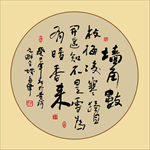 墙角數
枝梅凌寒獨自
開遥知不是雪為
有暗香来